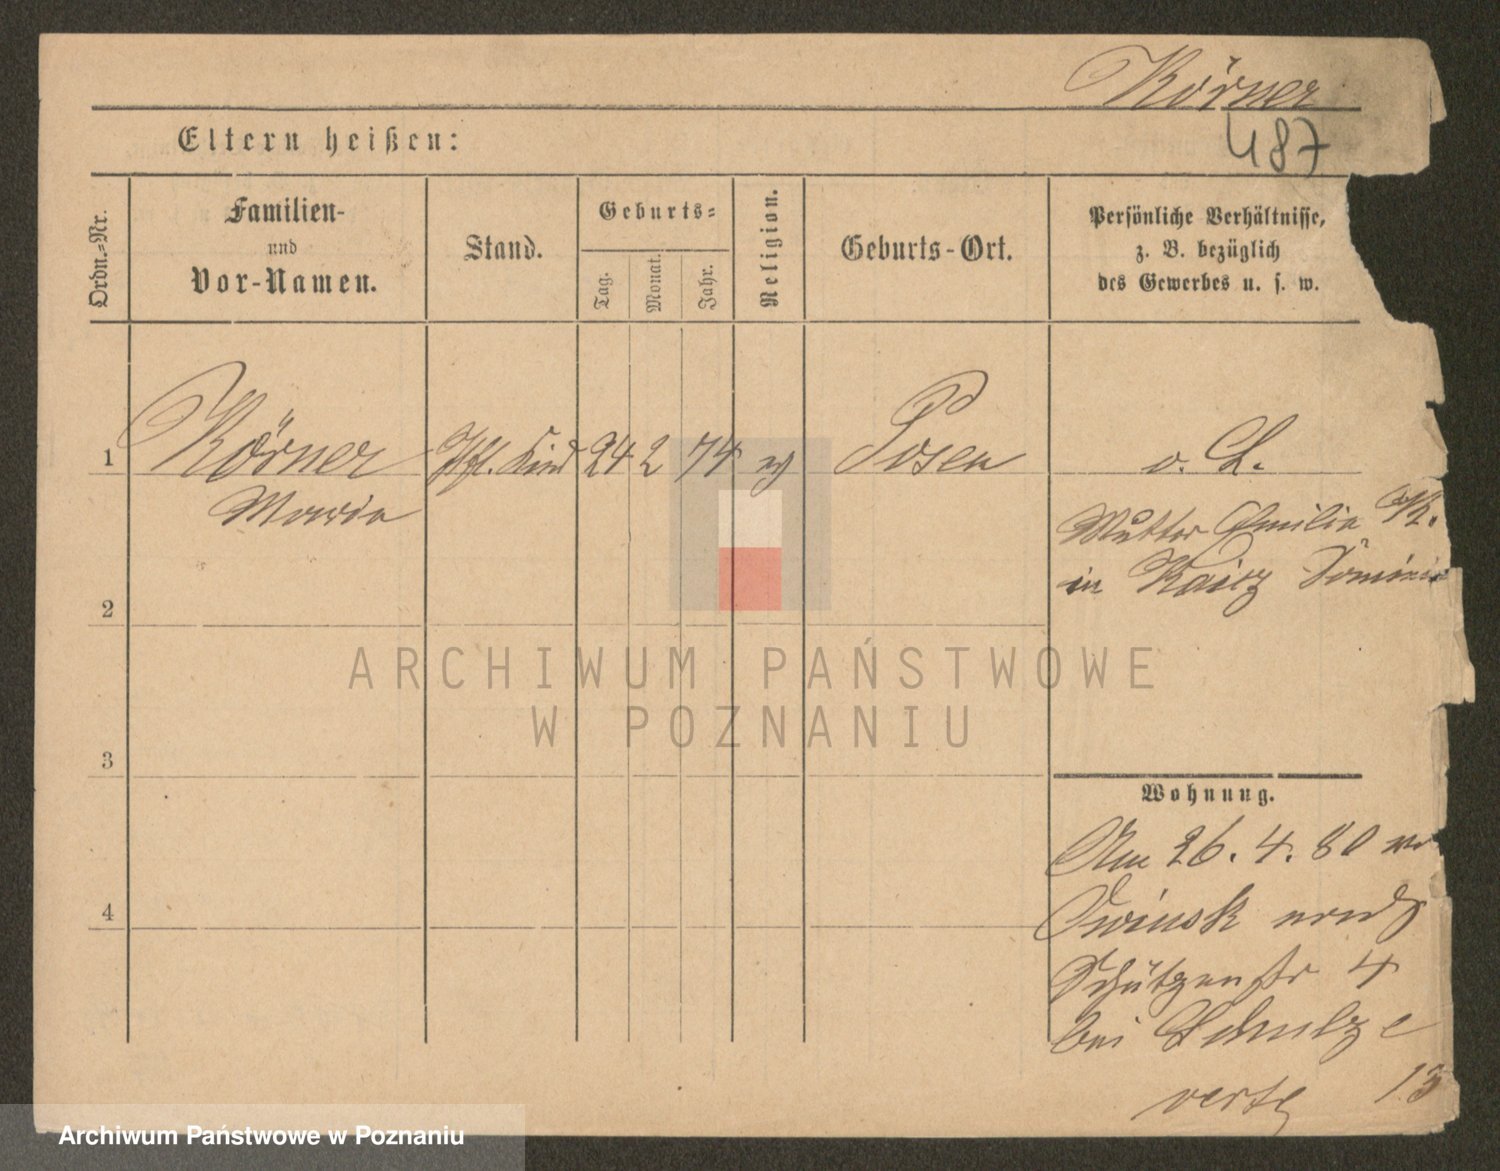 Körner
487
Eltern heißen:
Ordn.-Nr.
Familien-
und
Vor-Namen.
Stand.
Geburts-
Tag.
Monat.
Jahr.
Religion.
Geburts-Ort.
Persönliche Verhältnisse,
z. B. bezüglich
des Gewerbes u. s. w.
1 Körner Pfl. Kind 24 2 74 Posen o. L.
Maria
Mutter Emilie K.
in
2
3
4
Wohnung.
Am 26. 4. 80
Owinsk
Schützenstr 4
bei Schulze
verte 13
ARCHIWUM PAŃSTWOWE
W POZNANIU
Archiwum Państwowe w Poznaniu